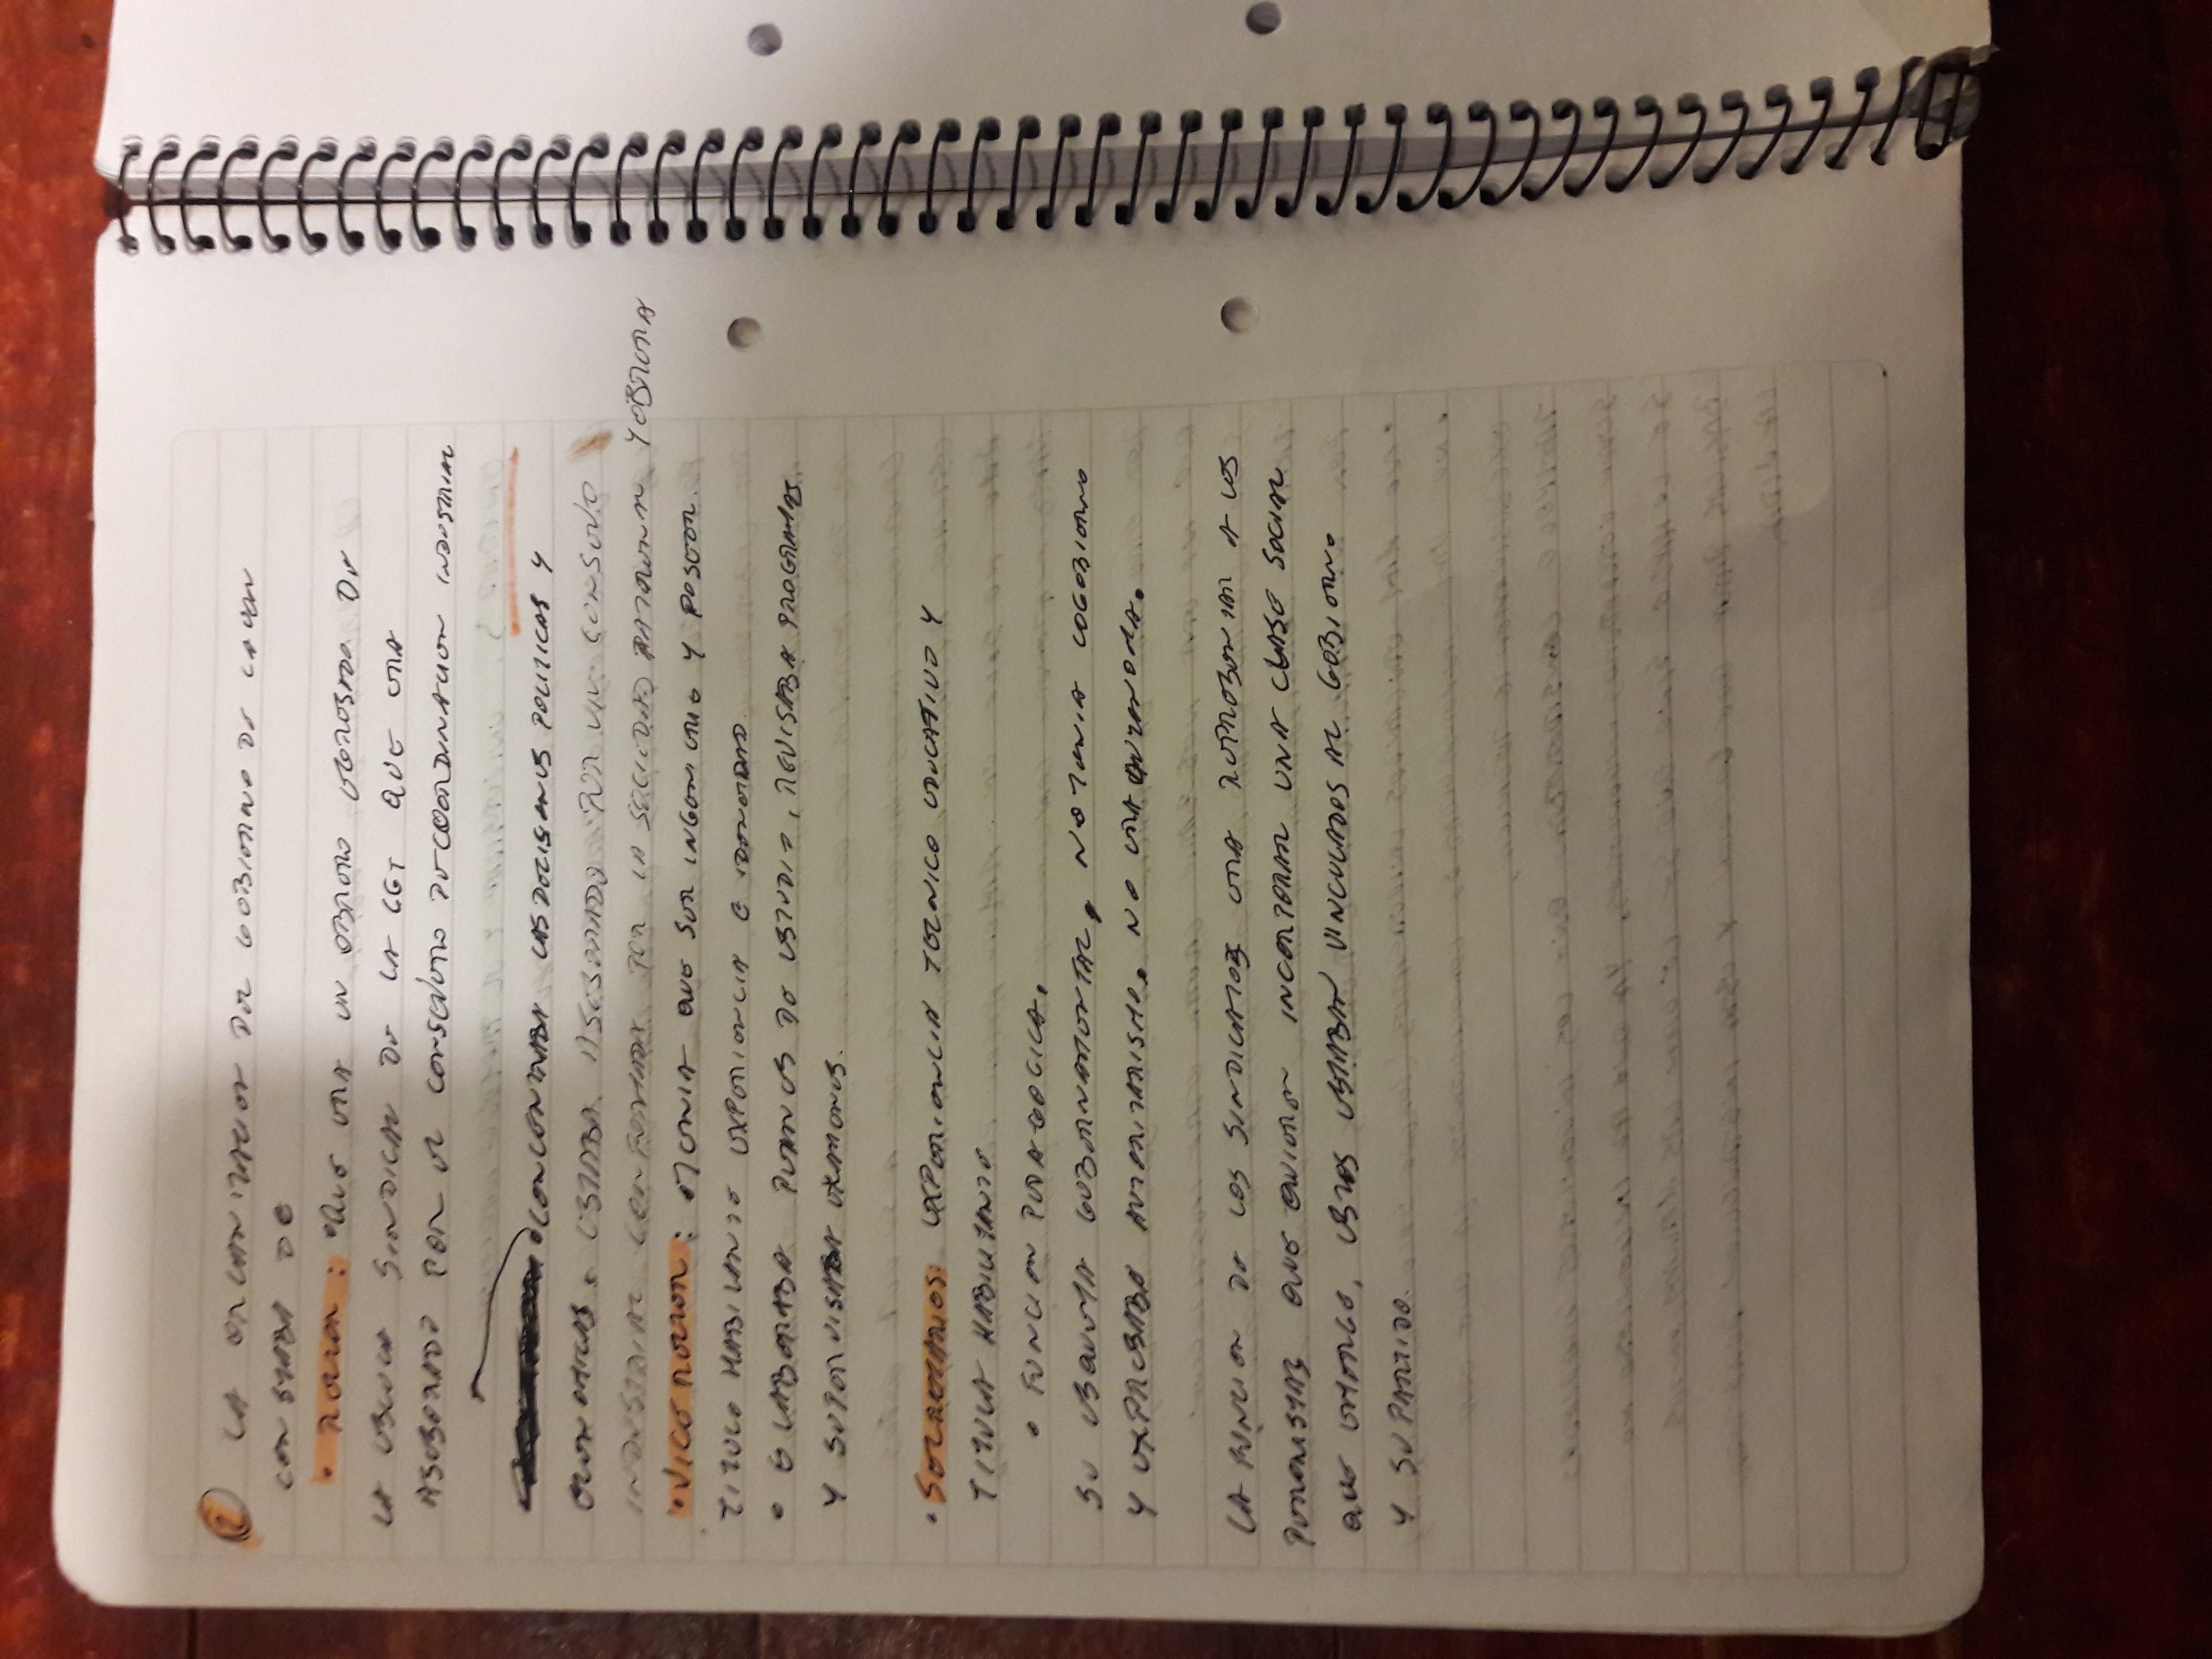 ② LA ORGANIZACION DEL GOBIERNO DE LA UON
CONSTABA DE
• RECTOR: • QUE ERA UN OBRERO EGRESADO DE
LA ESCUELA SINDICAL DE LA CGT QUE ERA
ASESORADO POR EL CONSEJERO DE COORDINACION INDUSTRIAL
• CONCENTRABA LAS DECISIONES POLITICAS Y
ECONOMICAS. ESTABA ASESORADO POR UN CONSEJO
INDUSTRIAL CONFORMADA POR LA SOCIEDAD PATRONAL Y OBRERA
• VICE RECTOR: • TENIA QUE SER INGENIERO Y POSEER
TITULO HABILANTE EXPERIENCIA E IDONEIDAD.
• ELABORABA PLANES DE ESTUDIO, REVISABA PROGRAMAS
Y SUPERVISABA EXAMENES.
• SECRETARIOS: EXPERIENCIA TECNICO EDUCATIVO Y
TITULA HABILITANTE
• FUNCION PEDAGOGICA.
SU ESQUEMA GUBERNAMENTAL, NO TENIA COGOBIERNO
Y EXPRESABA AUTORITARISMO. NO ERA AUTONOMA.
LA FUNCION DE LOS SINDICATOS ERA REPRESENTAR A LOS
PERONISTAS QUE QUIEREN INCORPORAR UNA CLASE SOCIAL
QUE EMERGE, ESTOS ESTABAN VINCULADOS AL GOBIERNO
Y SU PARTIDO.